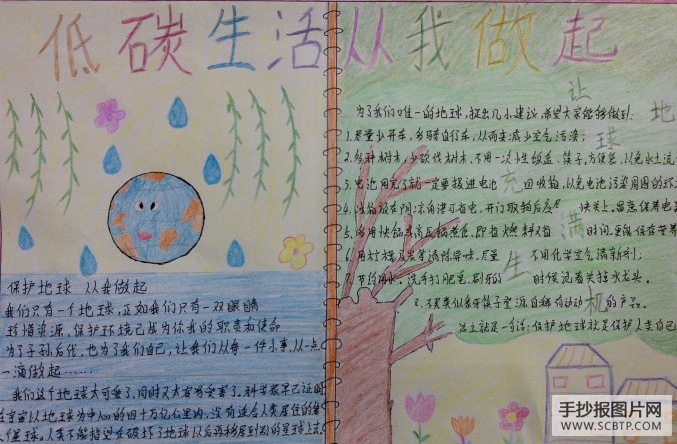 低碳生活从我做起
保护地球 从我做起
我们只有一个地球,正如我们只有一双眼睛
环境资源,保护环境已成为你我的职责和使命
为了子孙后代,也为了我们自己,让我们从每一件小事,从一点
一滴做起……
我们这个地球太可爱了,同时又太容易受害了。科学家早已证明
在宇宙以地球为中心的四十万亿公里内,没有适合人类居住的第
二个星球,人类不能指望在破坏了地球以后再移居到别的星球上去
让地球充满生机
为了我们唯一的地球,提出几小建议,希望大家能够做到:
1.尽量少开车,多骑自行车,从而来减少空气污染;
2.多种树木,少砍伐树木,不用一次性饭盒、筷子,方便袋,以免水土流
3.电池用完了就一定要投进电池回收箱,以免电池污染周围的环
4.冰箱放在阴凉角落可省电,开门取物后 快关上,
5.多用快锅或高压锅煮食,即省燃料又省时间,
6.用 清除异味,尽量不用化学空气清新剂;
7.节约用水,洗手打肥皂、刷牙的时候记着关掉水龙头。
8.不买类似 的产品。
总之就是一句话:保护地球就是保护人类自己
手抄报图片网
WWW.SCBTP.COM